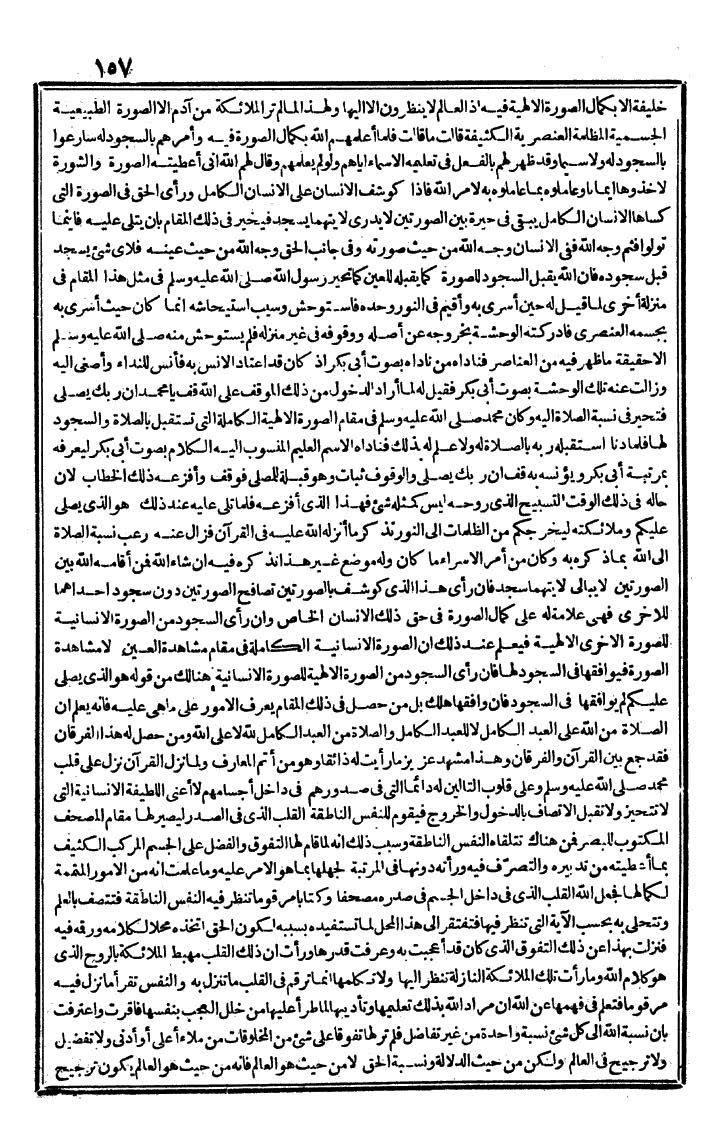 ١٥٧
خليفة الا بكمال الصورة الالهية فيه اذ العالم لا ينظرون الا اليها ولهذا لما لم تر الملائكة من آدم الا الصورة الطبيعية
الجسمية المظلمة العنصرية الكثيفة قالت ما قالت فلما أعلمهم الله بكمال الصورة فيه وأمرهم بالسجود له سارعوا
بالسجود له ولا سيما وقد ظهر لهم بالفعل فى تعليمه الاسماء اياهم ولو لم يعلمهم وقال لهم الله انى أعطيته الصورة والسورة
لاخذوها ايمانا وعاملوه بما عاملوه به لامر الله فاذا كوشف الانسان على الانسان الكامل ورأى الحق فى الصورة التى
كساها الانسان الكامل يبقى فى حيرة بين الصورتين لا يدرى لايتهما يسجد فيخير فى ذلك المقام بان يتلى عليه فاينما
تولوا فثم وجه الله ففى الانسان وجه الله من حيث صورته وفى جانب الحق وجه الله من حيث عينه فلاى شئ يسجد
قبل سجوده فان الله يقبل السجود للصورة كما يقبله للعين كما تحير رسول الله صلى الله عليه وسلم فى مثل هذا المقام فى
منزلة أخرى لما قيل له حين أسرى به وأقيم فى النور وحده فاستوحش وسبب استيحاشه انما كان حيث أسرى به
بجسمه العنصرى فادركته الوحشة بخروجه عن أصله ووقوفه فى غير منزله فلم يستوحش منه صلى الله عليه وسلم
الاحقيقة ما ظهر فيه من العناصر فناداه من ناداه بصوت أبى بكر اذ كان قد اعتاد الانس به فأنس للنداء وأصغى اليه
وزالت عنه تلك الوحشة بصوت أبى بكر فقيل له لما أراد الدخول من ذلك الموقف على الله قف يا محمد ان ربك يصلى
فتحير فى نسبة الصلاة اليه وكان محمد صلى الله عليه وسلم فى مقام الصورة الالهية الكاملة التى تستقبل بالصلاة والسجود
لها فلما دنا استقبله ربه بالصلاة له ولا علم له بذلك فناداه الاسم العليم المنسوب اليه الكلام بصوت أبى بكر ليعرفه
بمرتبة أبى بكر ويؤنسه به قف ان ربك يصلى والوقوف ثبات وهو قبلة للمصلى فوقف وأفزعه ذلك الخطاب لان
حاله فى ذلك الوقت التسبيح الذى روحه ليس كمثله شئ فهذا الذى أفزعه فلما تلى عليه عند ذلك هو الذى يصلى
عليكم وملائكته ليخرجكم من الظلمات الى النور تذكر ما أنزله الله عليه فى القرآن فزال عنه رعب نسبة الصلاة
الى الله بما ذكره به وكان من أمر الاسراء ما كان وله موضع غير هذا نذكره فيه ان شاء الله فمن أقامه الله بين
الصورتين لا يبالى لايتهما سجد فان رأى هذا الذى كوشف بالصورتين تصافح الصورتين دون سجود احداهما
للاخرى فهى علامة له على كمال الصورة فى حق ذلك الانسان الخاص وان رأى السجود من الصورة الانسانية
للصورة الاخرى الالهية فيعلم عند ذلك ان الصورة الانسانية الكاملة فى مقام مشاهدة العين لا مشاهدة
الصورة فيوافقها فى السجود لها فان رأى السجود من الصورة الالهية للصورة الانسانية هنالك من قوله هو الذى يصلى
عليكم لم يوافقها فى السجود فان وافقها هلك بل من حصل فى ذلك المقام يعرف الامور على ماهى عليه فانه يعلم ان
الصلاة من الله على العبد الكامل لا للعبد الكامل والصلاة من العبد الكامل لله لا على الله ومن حصل له هذا الفرقان
فقد جمع بين القرآن والفرقان وهذا مشهد عزيز ما رأيت له ذائقا وهو من أتم المعارف ولما نزل القرآن نزل على قلب
محمد صلى الله عليه وسلم وعلى قلوب التالين له دائما التى فى صدورهم فى داخل أجسامهم لا أعنى اللطيفة الانسانية التى
لا تتحيز ولا تقبل الاتصاف بالدخول والخروج فيقوم للنفس الناطقة القلب الذى فى الصدر ليصير لها مقام المصحف
المكتوب للبصر فمن هناك تتلقاه النفس الناطقة وسبب ذلك انه لما قام لها التفوق والفضل على الجسم المركب الكثيف
بما أعطيته من تدبيره والتصرف فيه ورأته دونها فى المرتبة لجهلها بما هو الامر عليه وما علمت انه من الامور المتممة
لكمالها فجعل الله القلب الذى فى داخل الجسم فى صدره مصحفا وكتابا مرقوما تنظر فيه النفس الناطقة فتتصف بالعلم
وتتحلى به بحسب الآية التى تنظر فيها فتفتقر الى هذا المحل لما تستفيده بسببه لكون الحق اتخذه محلا لكلامه ورقمه فيه
فنزلت بهذا عن ذلك التفوق الذى كان قد أعجبت به وعرفت قدرها ورأت ان ذلك القلب مهبط الملائكة بالروح الذى
هو كلام الله وما رأت تلك الملائكة النازلة تنظر اليها ولا تكلمها انما ترقم فى القلب ما تنزل به والنفس تقرأ ما نزل فيه
مرقوما فتعلم فى فهمها عن الله ان مراد الله بذلك تعليمها وتأديبها لما طرأ عليها من خلل العجب بنفسها فاقرت واعترفت
بان نسبة الله الى كل شئ نسبة واحدة من غير تفاضل فلم تر لها تفوقا على شئ من المخلوقات من ملاء أعلى أو أدنى ولا تفضيل
ولا ترجيح فى العالم ولكن من حيث الدلالة ونسبة الحق لا من حيث هو العالم فانه من حيث هو العالم يكون ترجيح